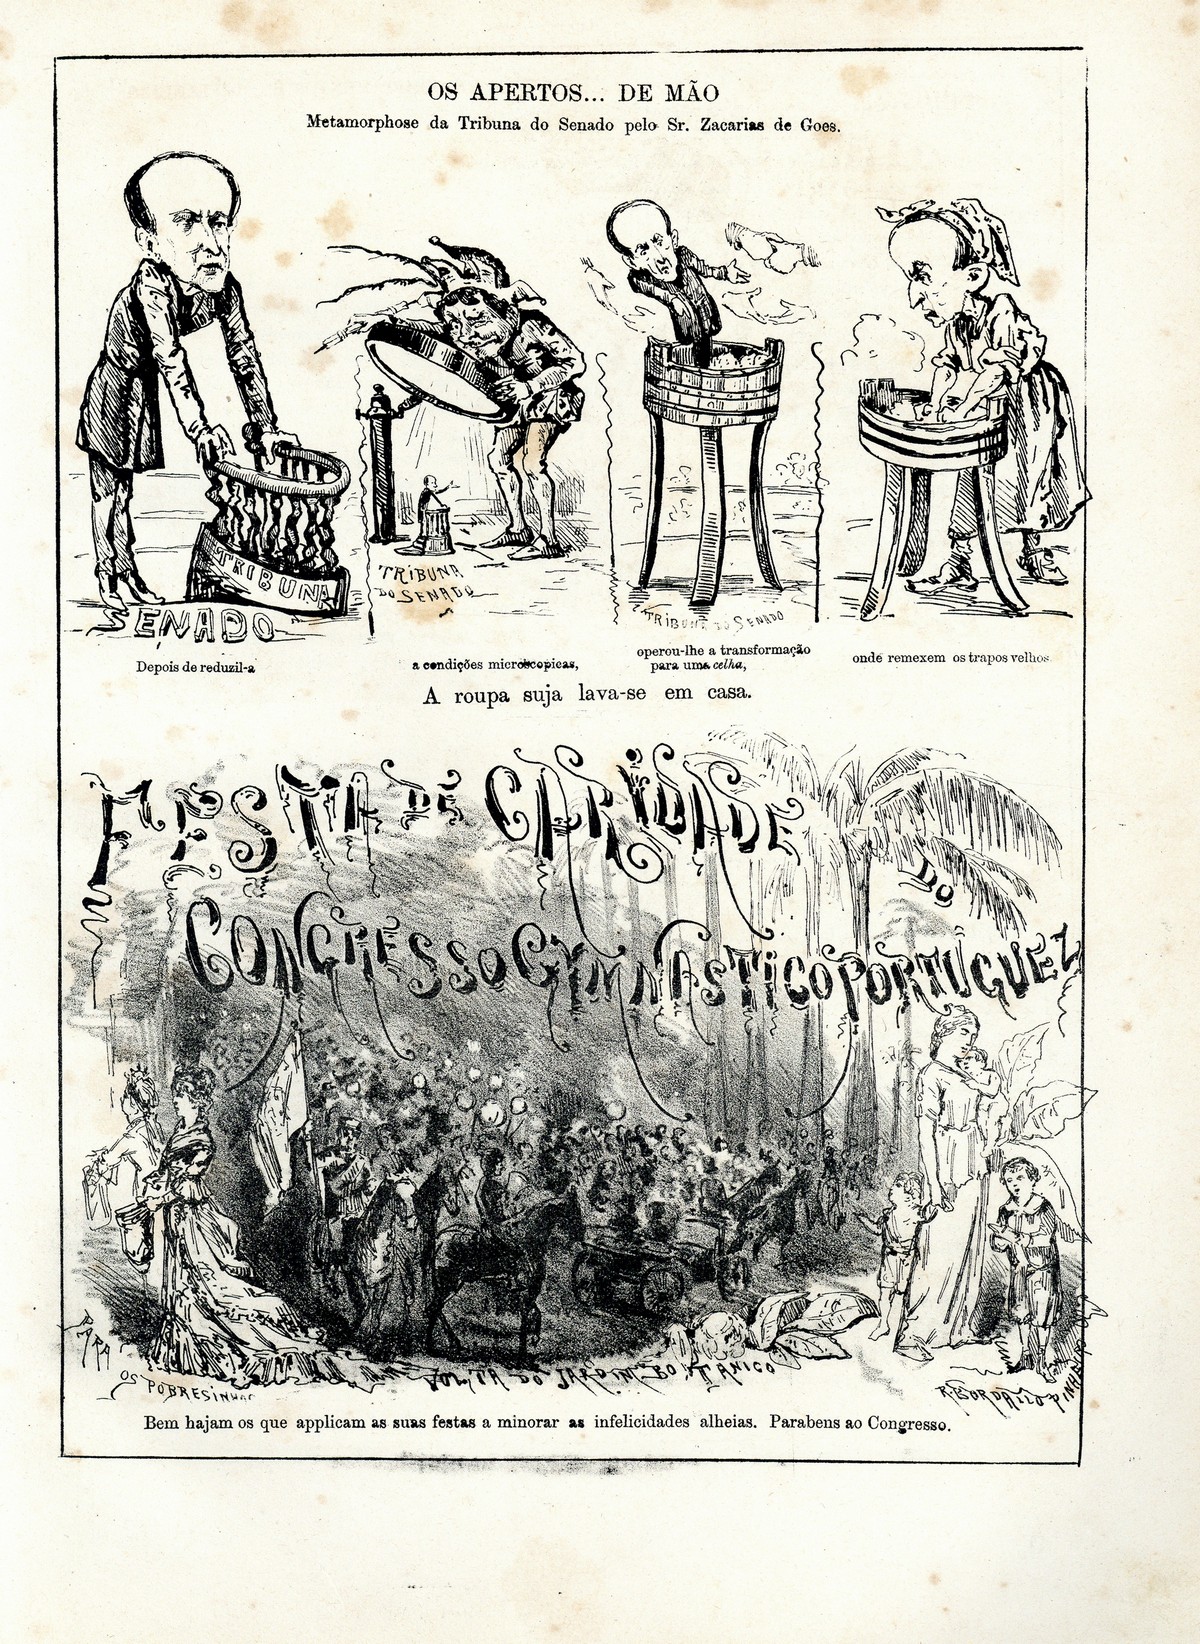 OS APERTOS... DE MÃO
Metamorphose da Tribuna do Senado pelo Sr. Zacarias de Goes.
TRIBUNA
SENADO
TRIBUNA
DO SENADO
TRIBUNA DO SENADO
Depois de reduzil-a
a condições microscopicas,
operou-lhe a transformação
para uma celha,
onde remexem os trapos velhos
A roupa suja lava-se em casa.
FESTA DE CARIDADE
DO
CONGRESSO GYMNASTICO PORTUGUEZ
PARA
OS POBRESINHOS
VOLTA DO JARDIM BOTANICO
R. BORDALLO PINHEIRO
Bem hajam os que applicam as suas festas a minorar as infelicidades alheias. Parabens ao Congresso.